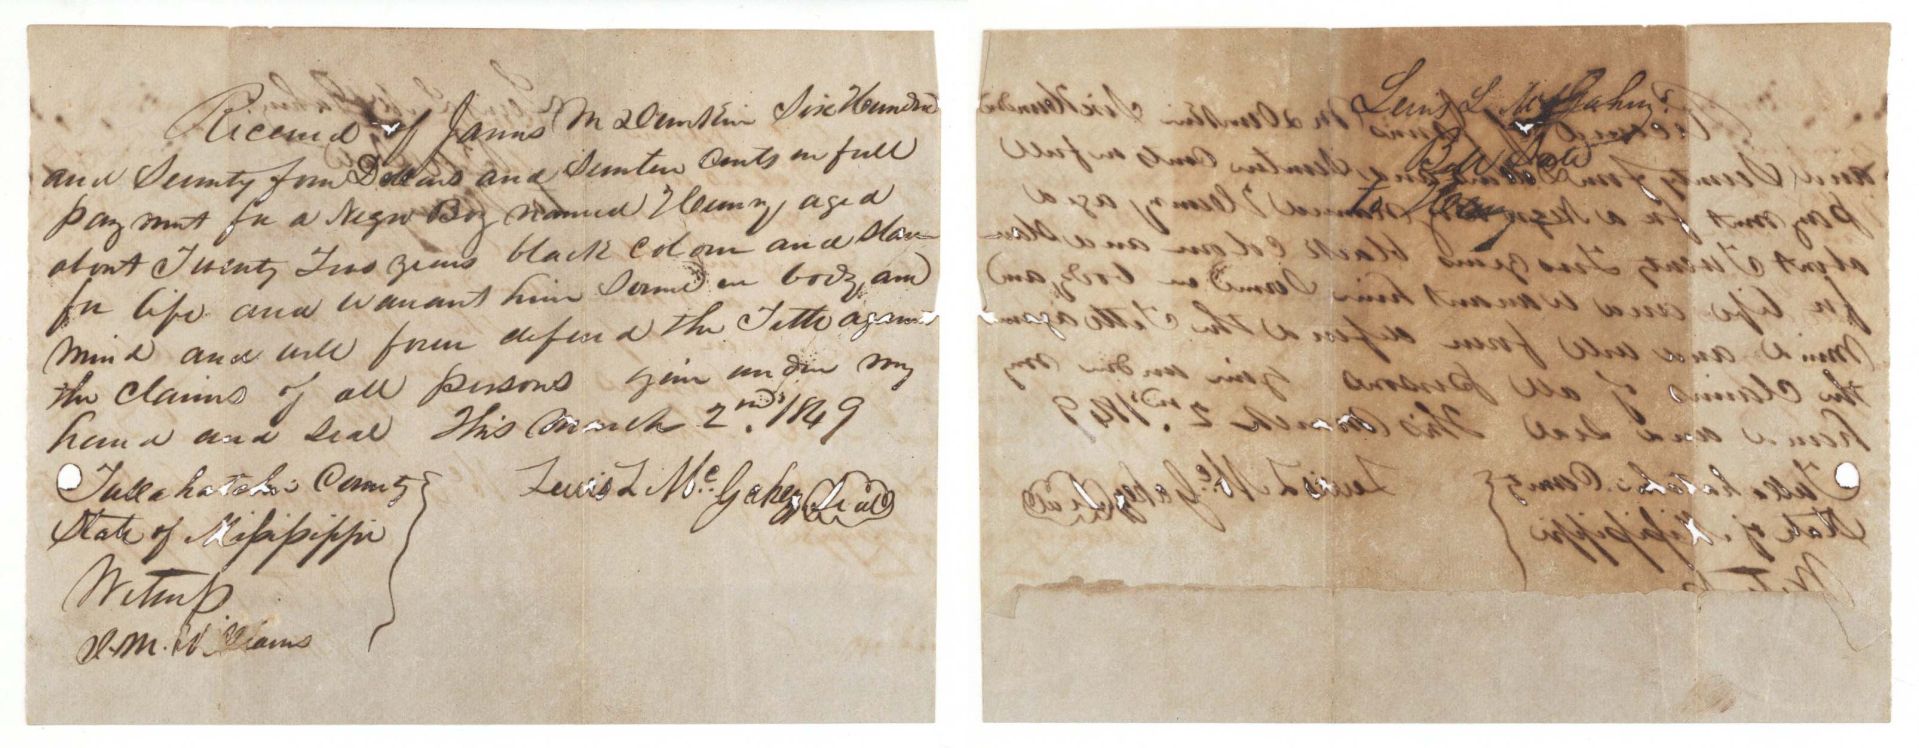 Received of James M Dunklin Six Hundred
and Seventy four Dollars and Seventen Cents in full
payment for a Negro Boy named Henry aged
about Twenty Two years black colour and slave
for life and warrant him Sound in body and
mind and will forever defend the Title against
the claims of all persons given under my
hand and seal This March 2nd. 1849
Lewis L Mc. Gahey Seal
Tallahatchie County
State of Mississippi
Witness
Williams
Lewis L McGahey
Bill Sale
to Henry